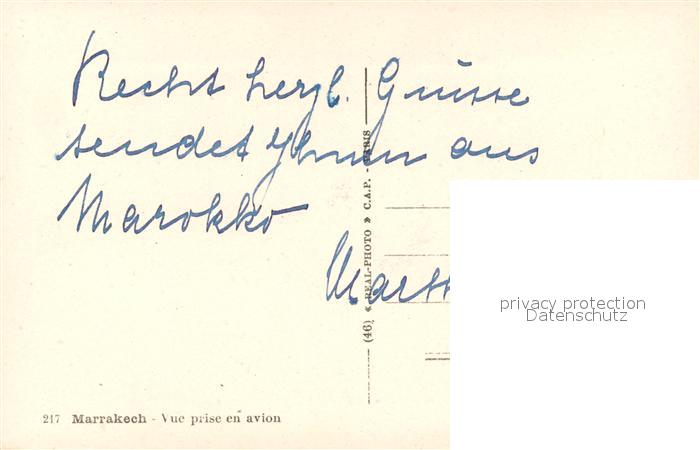 Recht herzl. Grüsse
sendet Ihnen aus
Marokko
(46) « REAL-PHOTO » C.A.P. - PARIS
privacy protection
Datenschutz
217 Marrakech - Vue prise en avion